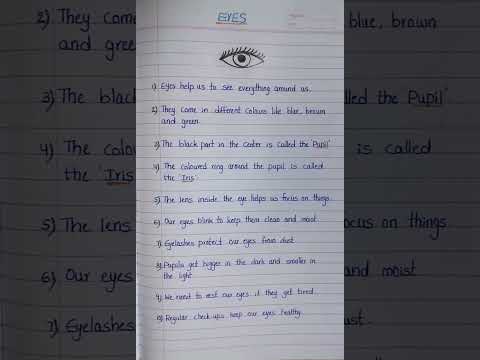 EYES
1) Eyes help us to see everything around us.
2) They come in different colours like blue, brown
and green
3) The black part in the center is called the 'Pupil'
4) The coloured ring around the pupil is called
the 'Iris'
5) The lens inside the eye helps us focus on things.
6) Our eyes blink to keep them clean and moist
7) Eyelashes protect our eyes from dust
8) Pupils get bigger in the dark and smaller in
the light
9) We need to rest our eyes if they get tired
10) Regular check ups keep our eyes healthy.
2) They come
and green
3) The black
4) The colou
the 'Iris
5) The lens
6) Our eyes
7) Eyelashes
blue, brown
the 'Pupil'
is called
focus on things
and moist